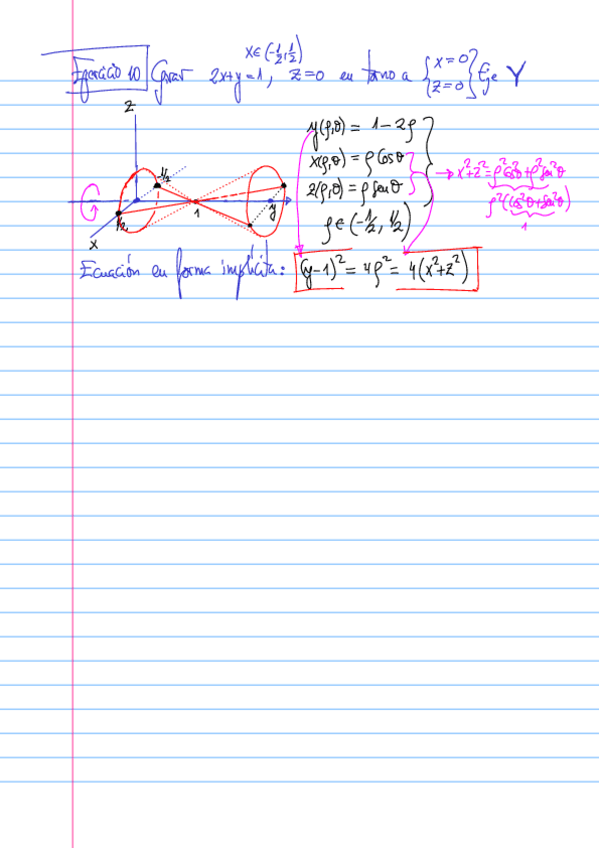 x∈(-1/2,1/2)
Ejercicio 10 Girar 2x+y=1, z=0 en torno a {x=0 z=0} Eje Y
z
-1/2
1/2
1
y
x
y(ρ,θ) = 1-2ρ
x(ρ,θ) = ρ cosθ
z(ρ,θ) = ρ senθ
ρ∈(-1/2, 1/2)
→ x²+z² = ρ²cos²θ+ρ²sen²θ
ρ²(cos²θ+sen²θ)
1
Ecuación en forma implícita: (y-1)² = 4ρ² = 4(x²+z²)